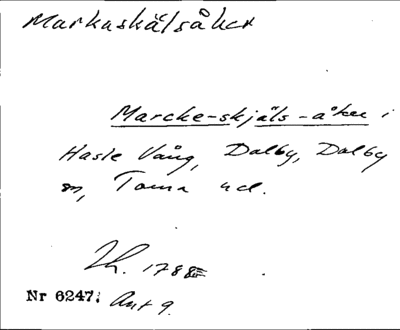 Markaskälsåker
Marcke-skjäls-åker i
Hasle Vång, Dalby, Dalby
sn, Torna hd.
Lh. 1788
Nr 6247. Akt 9.